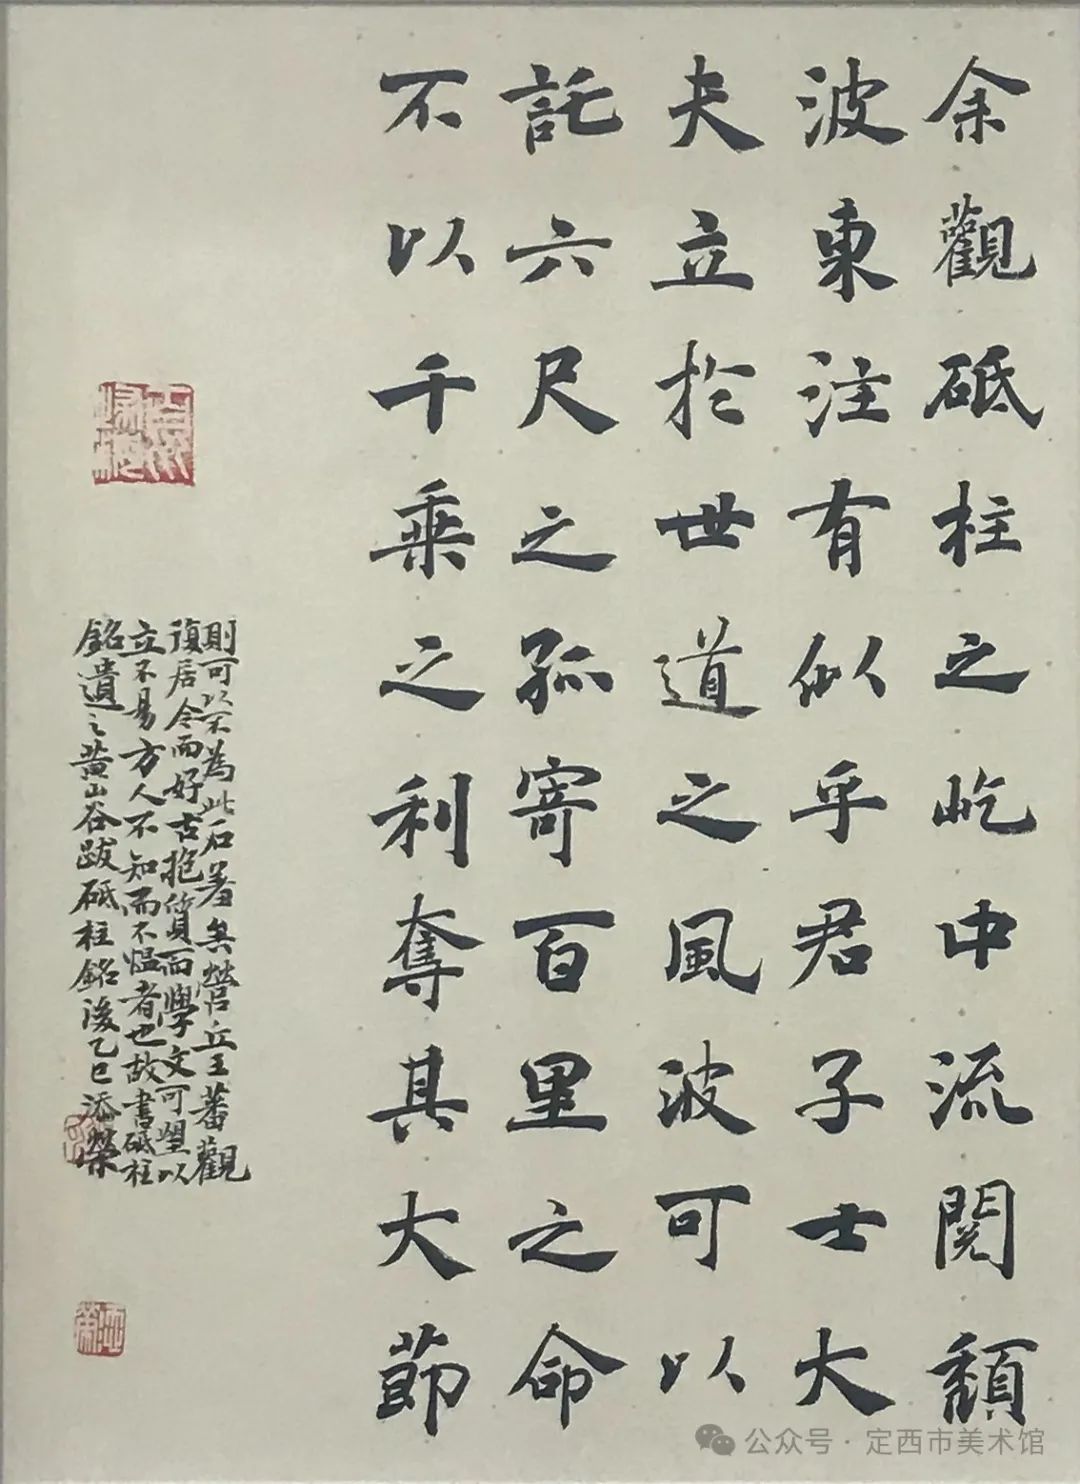 余觀砥柱之屹中流閱頹
波東注有似乎君子士大
夫立於世道之風波可以
託六尺之孤寄百里之命
不以千乘之利奪其大節
則可以不為此石羞矣營丘王蕃觀
復居今而好古抱質而學文可望以
立不易方人不知而不慍者也故書砥柱
銘遺之黃山谷跋砥柱銘後乙巳添榮
公众号·定西市美术馆